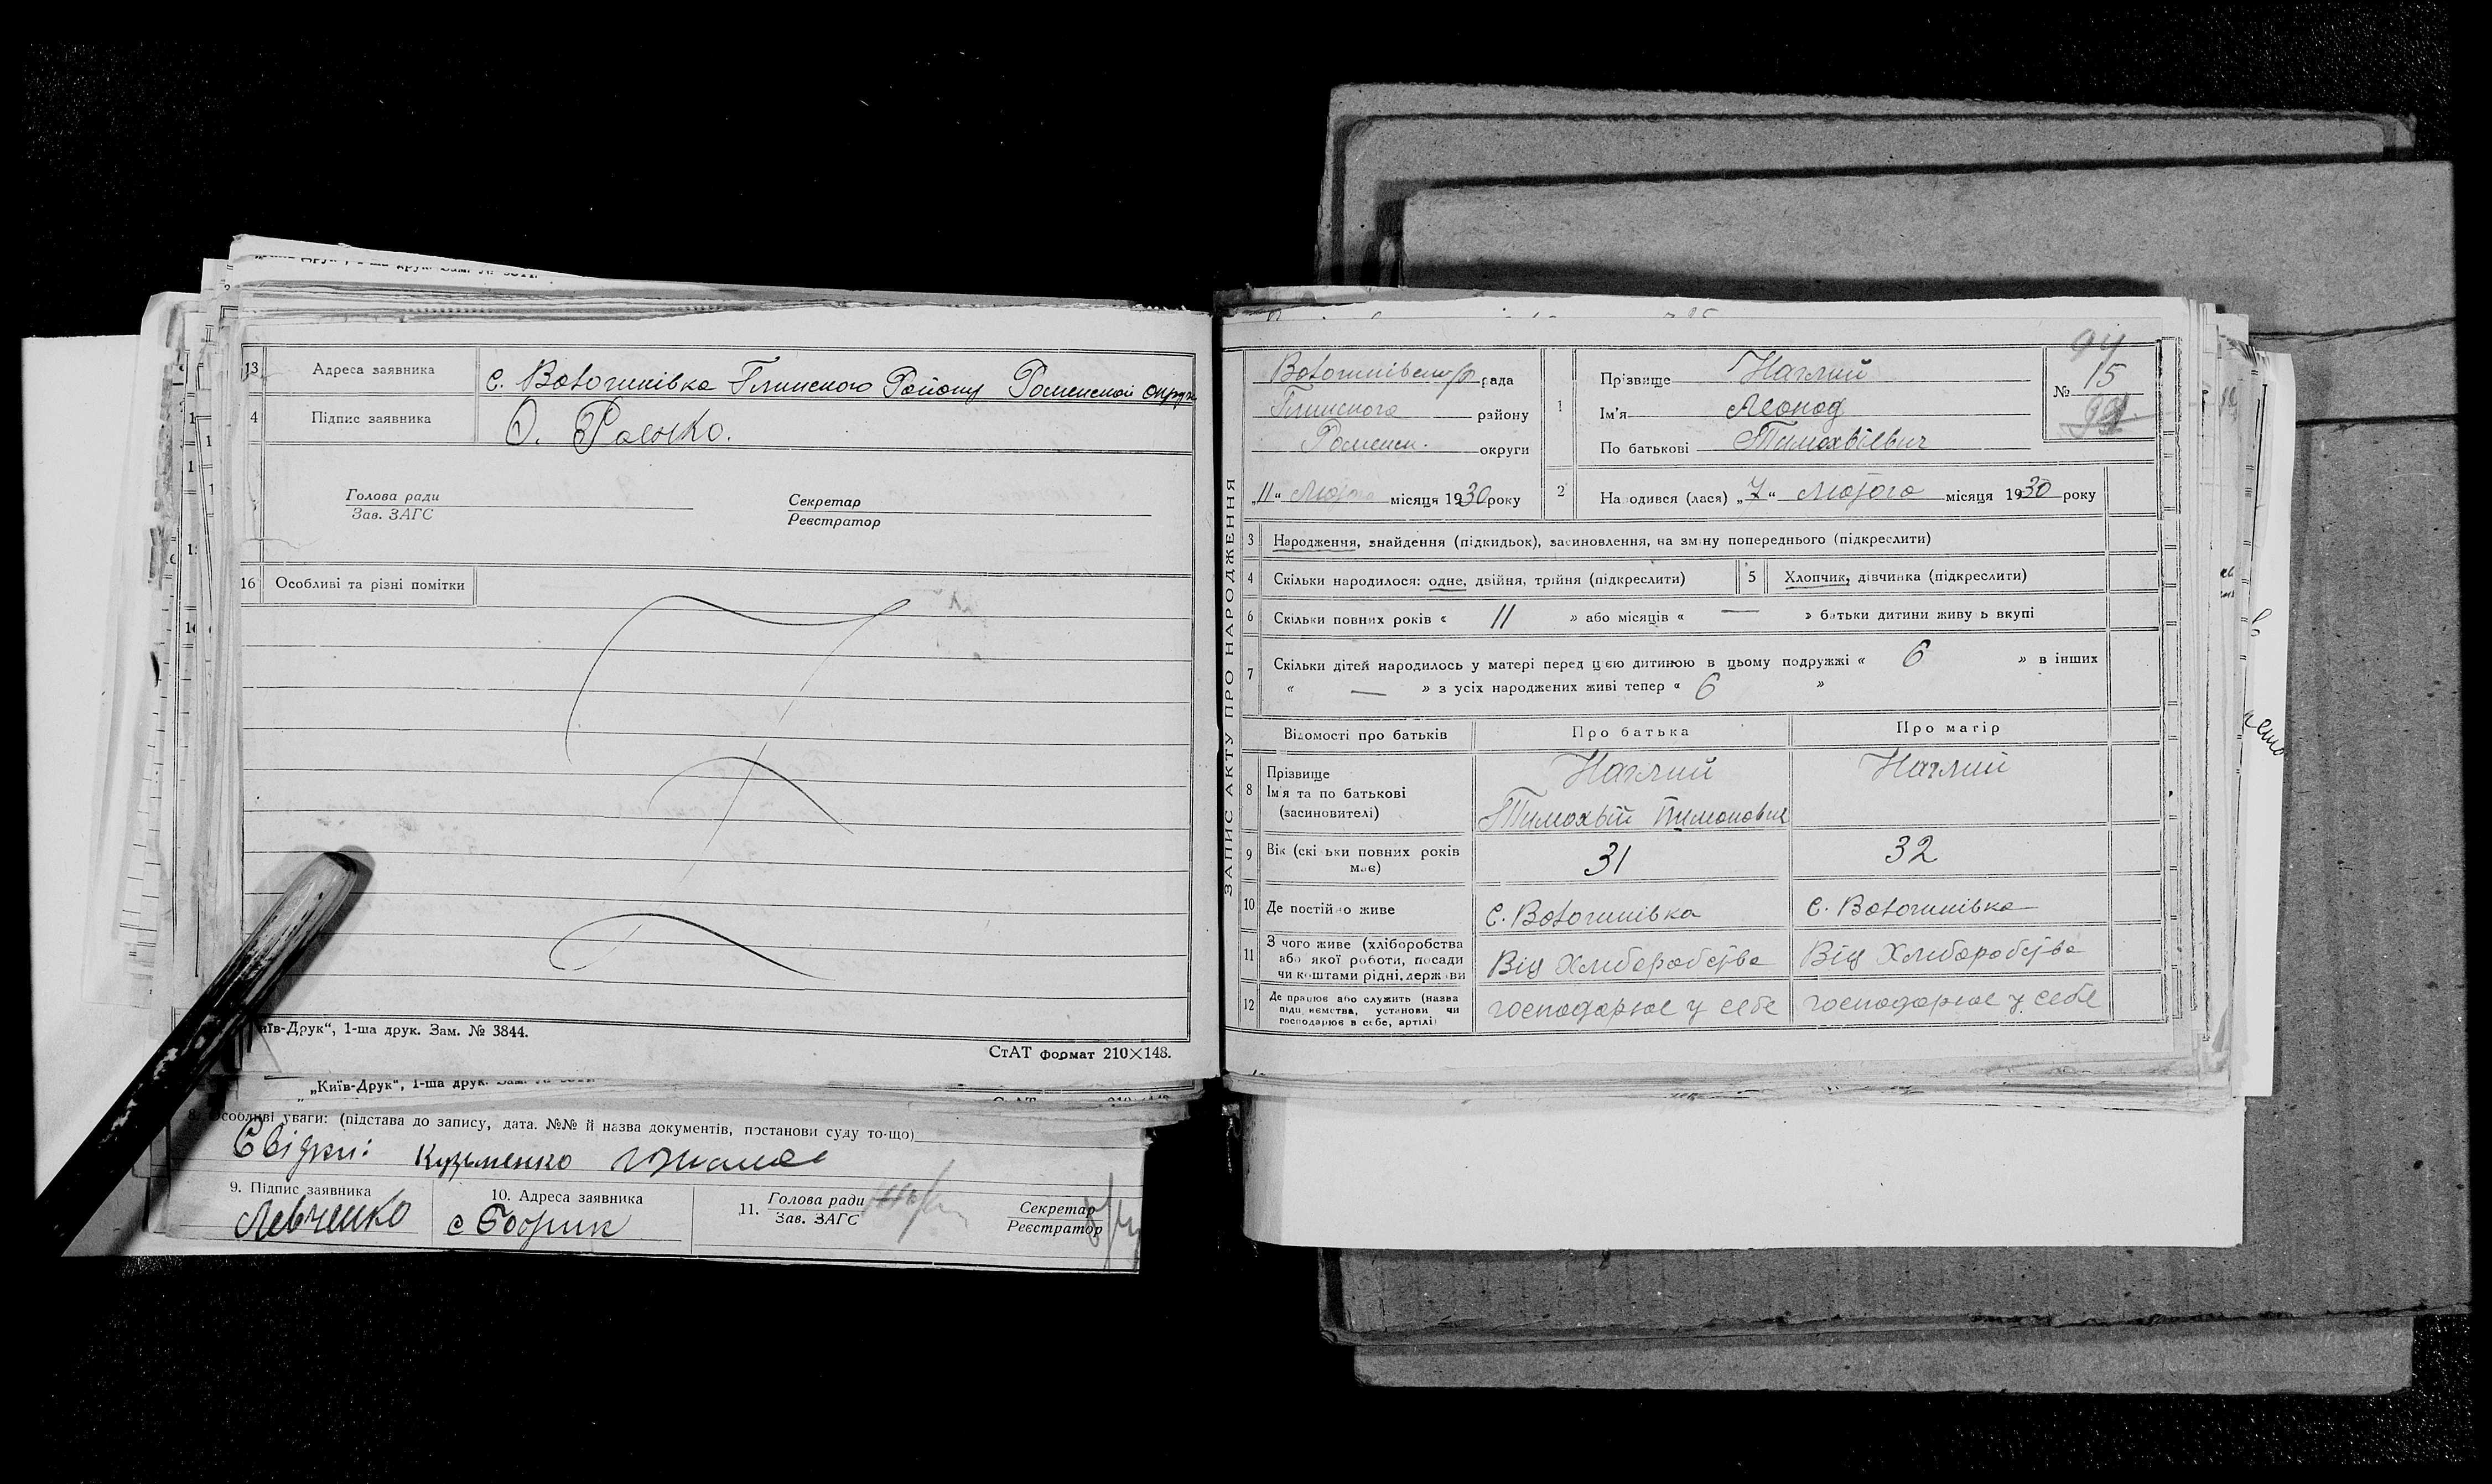 13 Адреса заявника с. Волошнівка Глинского Району Роменской округи
4 Підпис заявника О. Раенко.
Голова ради
Зав. ЗАГС
Секретар
Реєстратор
16 Особливі та різні помітки
їв-Друк“, 1-ша друк. Зам. № 3844.
СтАТ формат 210×148.
„Київ-Друк“, 1-ша друк.
8. Особливі уваги: (підстава до запису, дата. №№ й назва документів, постанови суду то-що)
Свідки: Кузьменко
9. Підпис заявника
Левченко
10. Адреса заявника
с
11. Голова ради
Зав. ЗАГС
Секретар
Реєстратор
ЗАПИС АКТУ ПРО НАРОДЖЕННЯ
рада
Глинского району
Роменск. округи
„11“ Лютого місяця 1930 року
1 Прізвище Наглий
Ім'я Леонод
По батькові Тимохвієвич
94
№ 15
2 На одився (лася) „7“ Лютого місяця 1930 року
3 Народження, знайдення (підкидьок), засиновлення, на зміну попереднього (підкреслити)
4 Скільки народилося: одне, двійня, трійня (підкреслити)
5 Хлопчик, дівчинка (підкреслити)
6 Скільки повних років « 11 » або місяців « — » батьки дитини живу ь вкупі
7 Скільки дітей народилось у матері перед цією дитиною в цьому подружжі « 6 » в інших
« — » з усіх народжених живі тепер « 6 »
Відомості про батьків Про батька Про матір
8 Прізвище Наглий Наглий
Ім'я та по батькові
(засиновителі) Тимохвій Пимонович
9 Вік (скі ьки повних років має) 31 32
10 Де постійно живе с. Волошнівка с. Волошнівка
11 З чого живе (хліборобства
або якої роботи, посади
чи коштами рідні, держави Від Хліборобства Від Хліборобства
12 Де працює або служить (назва
підп. иємства, установи чи
господарює в себе, артілі) господарює у себе господарює у себе